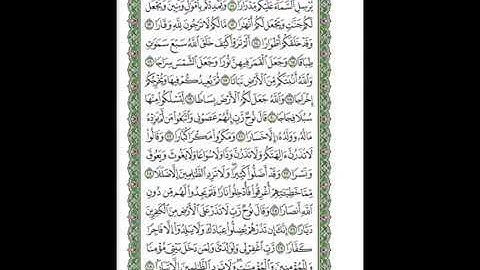 يُرْسِلِ السَّمَاءَ عَلَيْكُم مِّدْرَارًا ١١ وَيُمْدِدْكُم بِأَمْوَالٍ وَبَنِينَ وَيَجْعَل
لَّكُمْ جَنَّاتٍ وَيَجْعَل لَّكُمْ أَنْهَارًا ١٢ مَّا لَكُمْ لَا تَرْجُونَ لِلَّهِ وَقَارًا ١٣
وَقَدْ خَلَقَكُمْ أَطْوَارًا ١٤ أَلَمْ تَرَوْا كَيْفَ خَلَقَ اللَّهُ سَبْعَ سَمَاوَاتٍ
طِبَاقًا ١٥ وَجَعَلَ الْقَمَرَ فِيهِنَّ نُورًا وَجَعَلَ الشَّمْسَ سِرَاجًا ١٦
وَاللَّهُ أَنبَتَكُم مِّنَ الْأَرْضِ نَبَاتًا ١٧ ثُمَّ يُعِيدُكُمْ فِيهَا وَيُخْرِجُكُمْ
إِخْرَاجًا ١٨ وَاللَّهُ جَعَلَ لَكُمُ الْأَرْضَ بِسَاطًا ١٩ لِّتَسْلُكُوا مِنْهَا
سُبُلًا فِجَاجًا ٢٠ قَالَ نُوحٌ رَّبِّ إِنَّهُمْ عَصَوْنِي وَاتَّبَعُوا مَن لَّمْ يَزِدْهُ
مَالُهُ وَوَلَدُهُ إِلَّا خَسَارًا ٢١ وَمَكَرُوا مَكْرًا كُبَّارًا ٢٢ وَقَالُوا
لَا تَذَرُنَّ آلِهَتَكُمْ وَلَا تَذَرُنَّ وَدًّا وَلَا سُوَاعًا وَلَا يَغُوثَ وَيَعُوقَ
وَنَسْرًا ٢٣ وَقَدْ أَضَلُّوا كَثِيرًا وَلَا تَزِدِ الظَّالِمِينَ إِلَّا ضَلَالًا ٢٤
مِّمَّا خَطِيئَاتِهِمْ أُغْرِقُوا فَأُدْخِلُوا نَارًا فَلَمْ يَجِدُوا لَهُم مِّن دُونِ
اللَّهِ أَنصَارًا ٢٥ وَقَالَ نُوحٌ رَّبِّ لَا تَذَرْ عَلَى الْأَرْضِ مِنَ الْكَافِرِينَ
دَيَّارًا ٢٦ إِنَّكَ إِن تَذَرْهُمْ يُضِلُّوا عِبَادَكَ وَلَا يَلِدُوا إِلَّا فَاجِرًا
كَفَّارًا ٢٧ رَّبِّ اغْفِرْ لِي وَلِوَالِدَيَّ وَلِمَن دَخَلَ بَيْتِيَ مُؤْمِنًا
وَلِلْمُؤْمِنِينَ وَالْمُؤْمِنَاتِ وَلَا تَزِدِ الظَّالِمِينَ إِلَّا تَبَارًا ٢٨